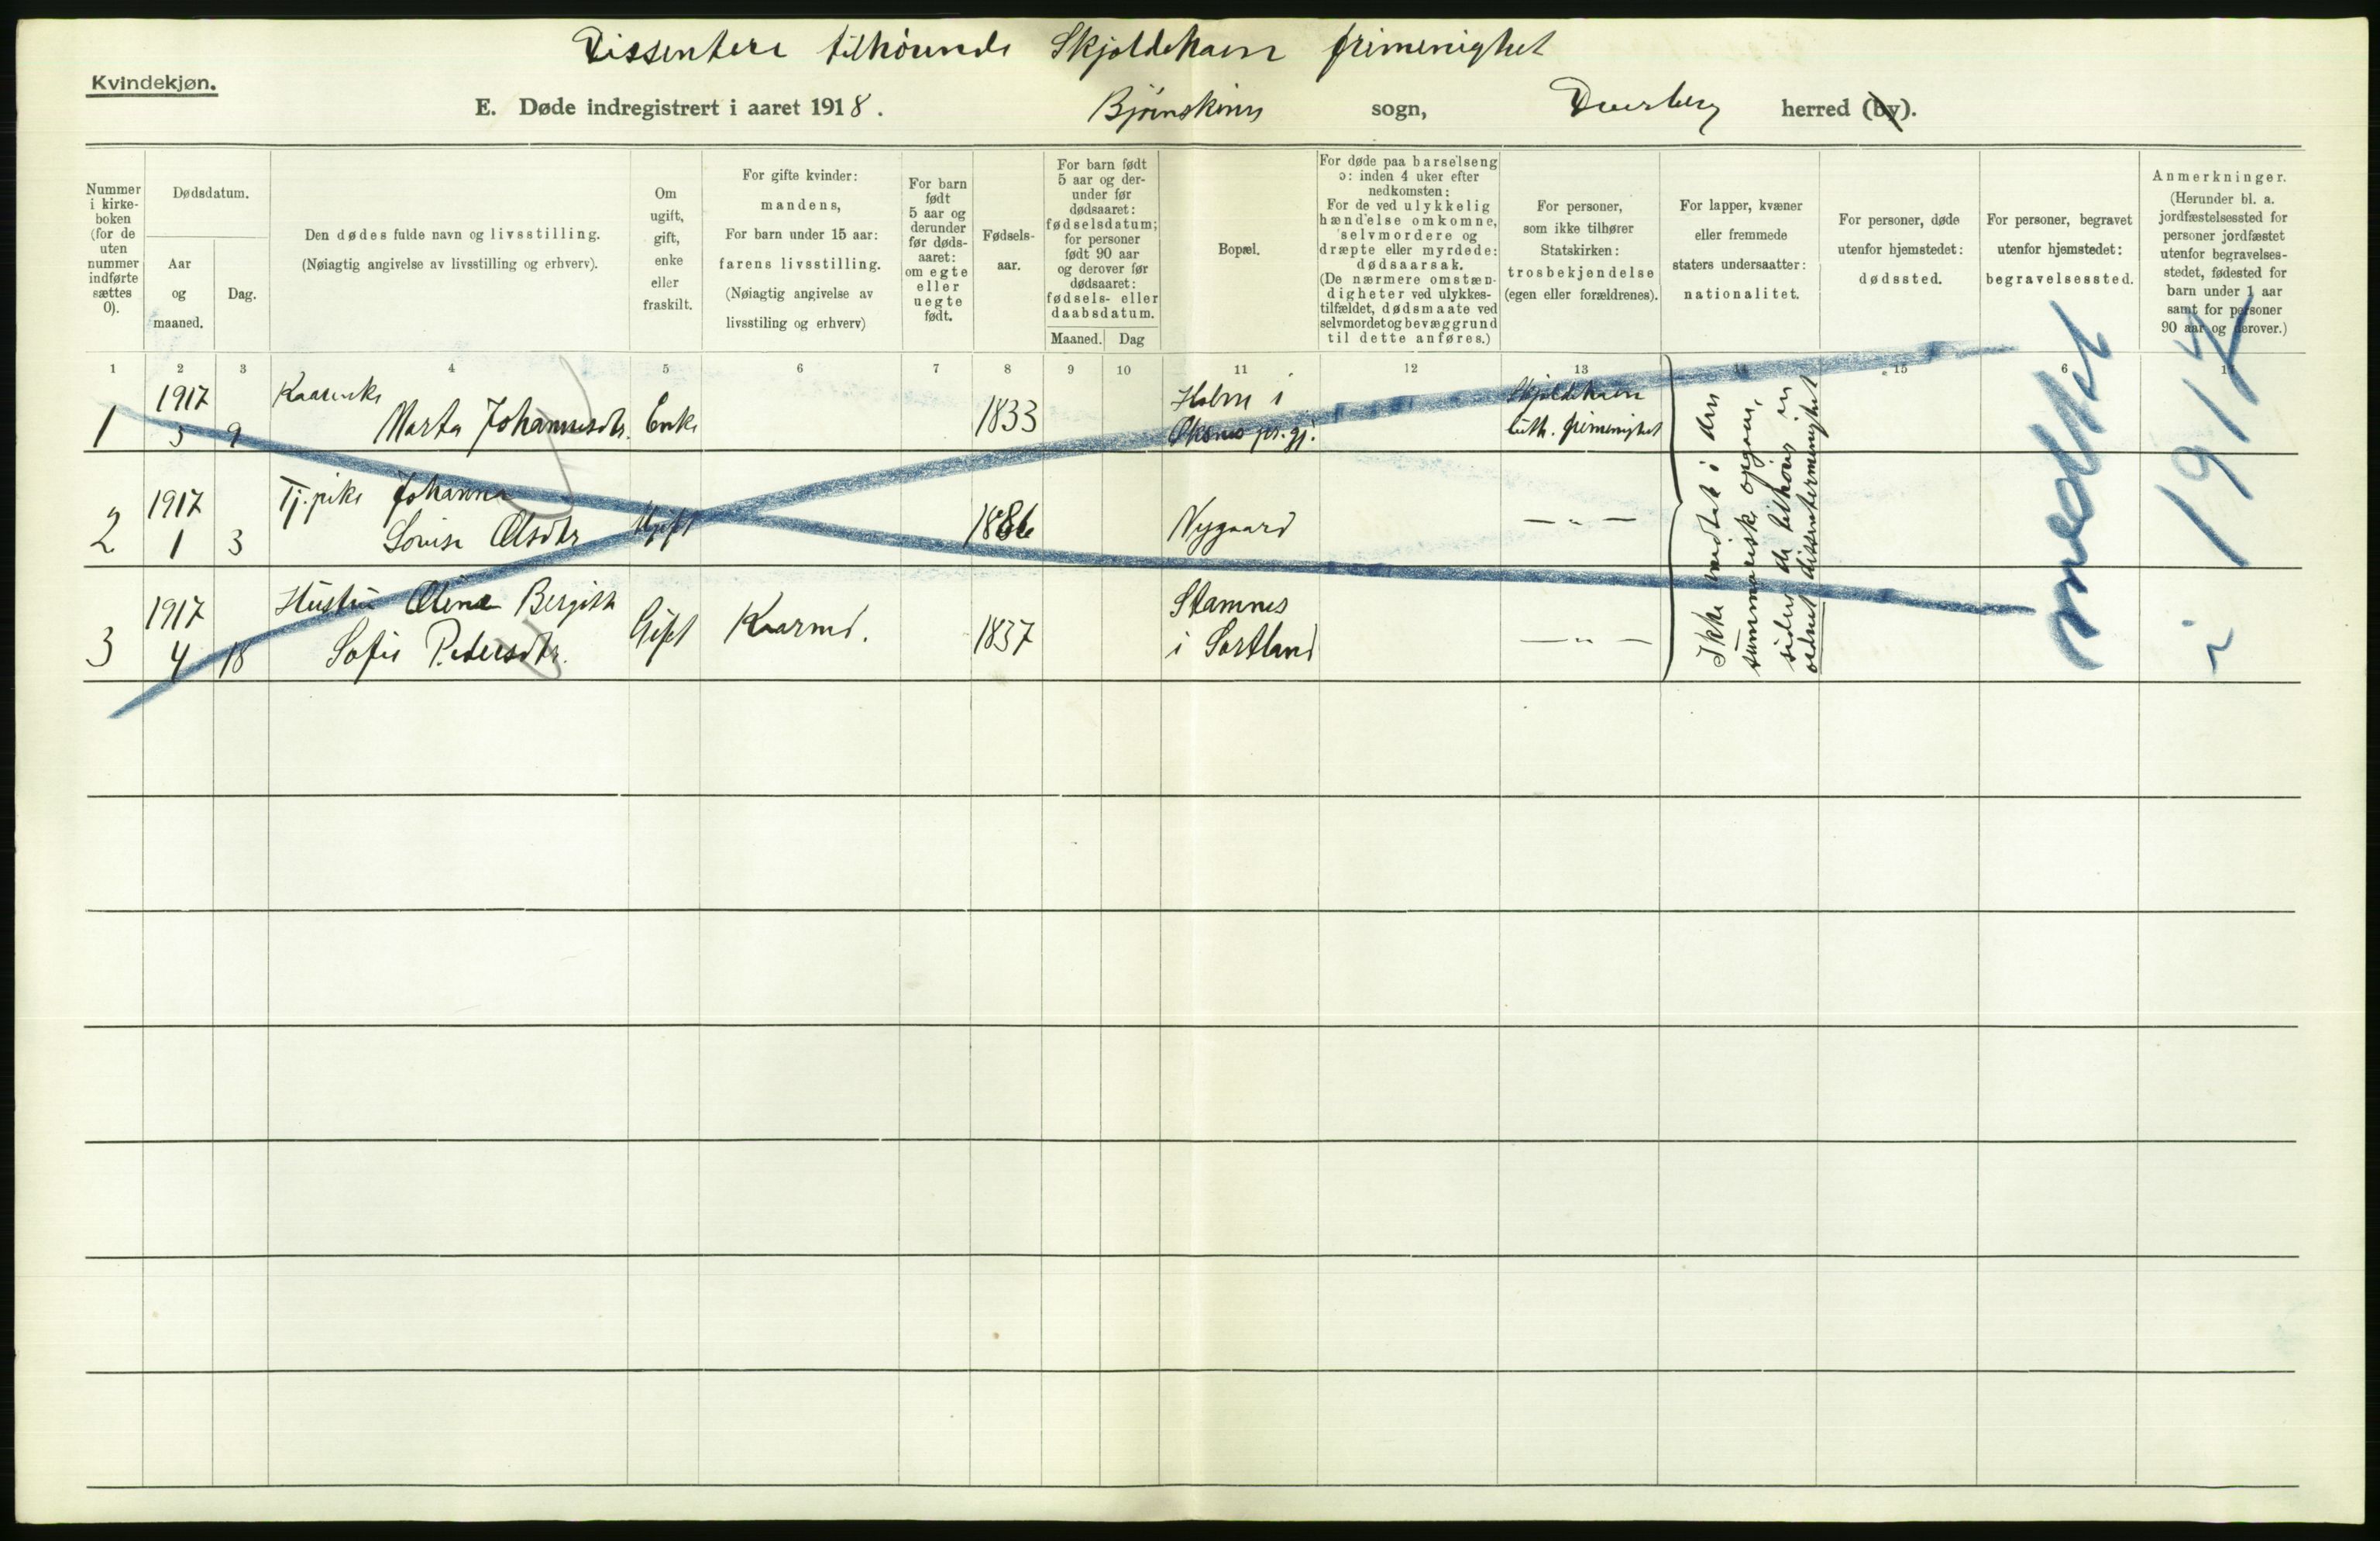 Dissentere tilhørende Skjoldehavn frimenighet
Kvindekjøn.
E. Døde indregistrert i aaret 1918. Bjørnskinn sogn, Dverberg herred (by).
Nummer i kirkeboken (for de uten nummer indførte sættes 0).
Dødsdatum.
Aar og maaned.
Dag.
Den dødes fulde navn og livsstilling.
(Nøiagtig angivelse av livsstilling og erhverv).
Om ugift, gift, enke eller fraskilt.
For gifte kvinder: mandens,
For barn under 15 aar: farens livsstilling.
(Nøiagtig angivelse av livsstiling og erhverv)
For barn født 5 aar og derunder før dødsaaret: om egte eller uegte født.
Fødselsaar.
For barn født 5 aar og derunder før dødsaaret: fødselsdatum; for personer født 90 aar og derover før dødsaaret: fødsels- eller daabsdatum.
Maaned. Dag
Bopæl.
For døde paa barselseng ɔ: inden 4 uker efter nedkomsten:
For de ved ulykkelig hændelse omkomne, selvmordere og dræpte eller myrdede: dødsaarsak.
(De nærmere omstændigheter ved ulykkestilfældet, dødsmaate ved selvmordet og bevæggrund til dette anføres.)
For personer, som ikke tilhører Statskirken: trosbekjendelse (egen eller forældrenes).
For lapper, kvæner eller fremmede staters undersaatter: nationalitet.
For personer, døde utenfor hjemstedet: dødssted.
For personer, begravet utenfor hjemstedet: begravelsessted.
Anmerkninger.
(Herunder bl. a. jordfæstelsessted for personer jordfæstet utenfor begravelsesstedet, fødested for barn under 1 aar samt for personer 90 aar og derover.)
1 2 3 4 5 6 7 8 9 10 11 12 13 14 15 6
1 1917 9 Kaarenke Marta Johannesdtr. Enke 1833 Holm i Øksnes pr.gj. Skjoldehavn luth. frimenighet
2 1917 1 3 Tj.pike Johanna Lovise Olsdtr Ugift 1886 Nygaard — „ —
3 1917 4 18 Hustru Oline Bergitte Sofie Pedersdtr. Gift Kaarmd. 1837 Stamnes i Sortland — „ —
Ikke medtat i den
summariske opgave,
siden de tilhører en
ordnet dissentermenighet
medtat
i 1917